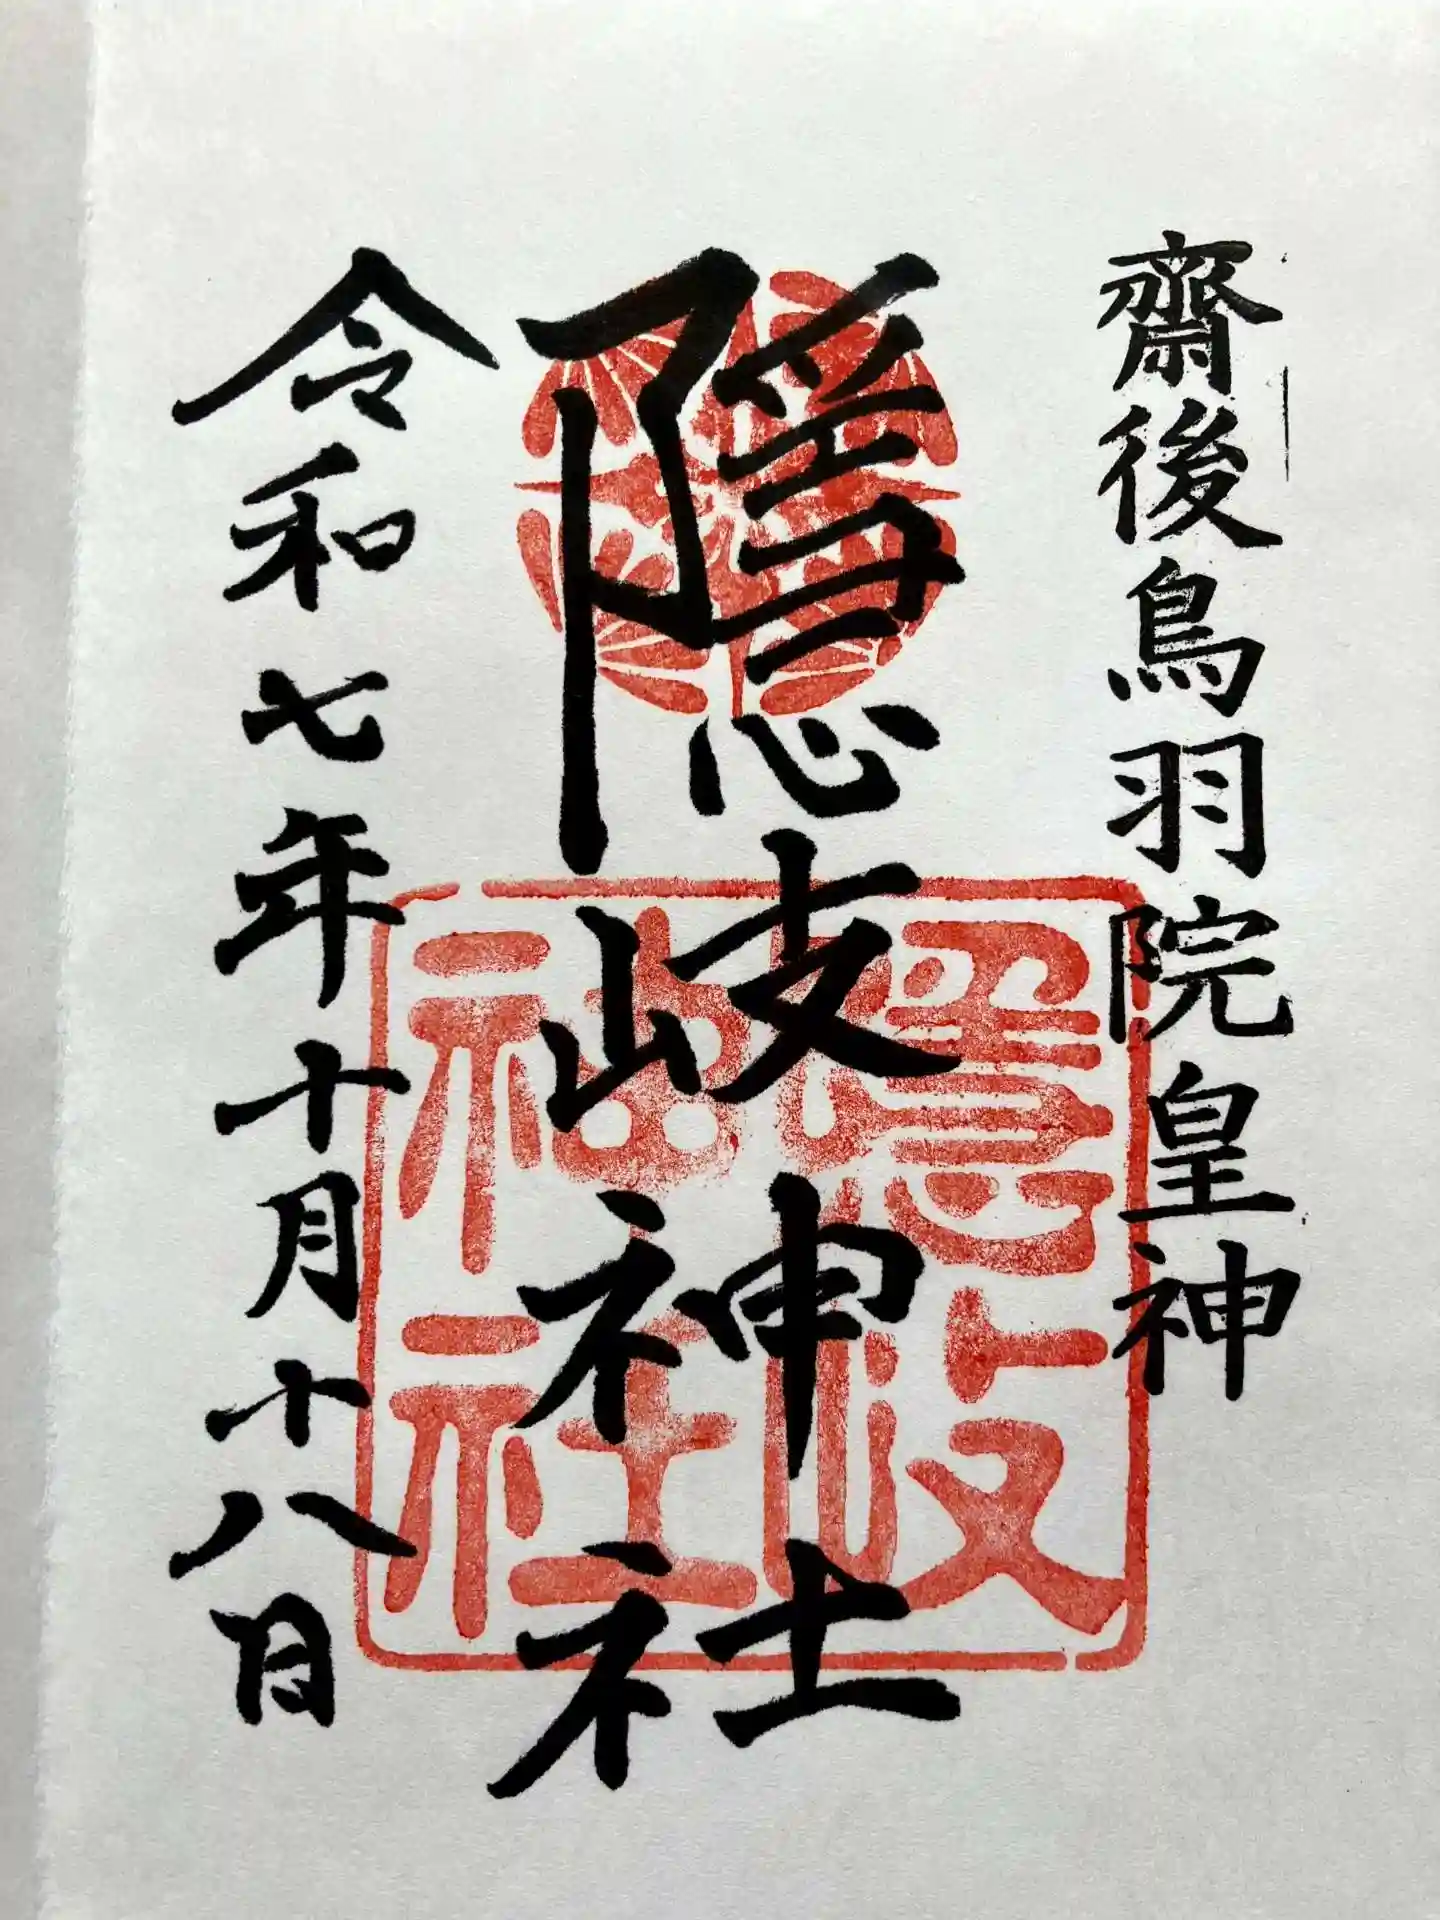 齋後鳥羽院皇神
隱岐神社
隱岐
神社
令和七年十月十八日